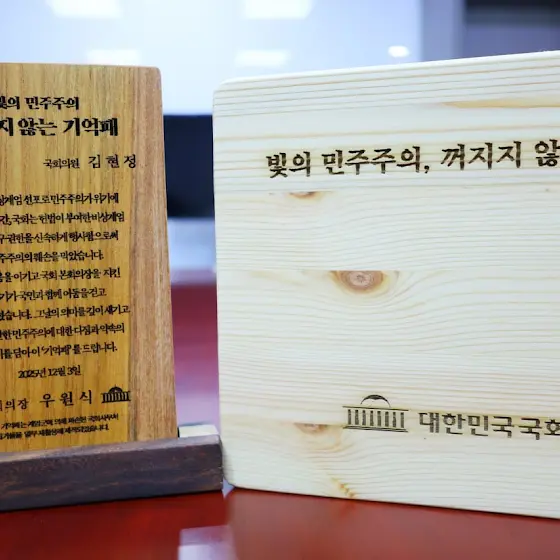 빛의 민주주의
지 않는 기억패
국회의원 김현정
상계엄 선포로 민주주의가 위기에
간, 국회는 헌법이 부여한 비상계엄
구권한을 신속하게 행사함으로써
주주의의 훼손을 막았습니다.
움을 이기고 국회 본회의장을 지킨
기가 국민과 함께 어둠을 걷고
했습니다. 그날의 의미를 깊이 새기고
한 민주주의에 대한 다짐과 약속의
를 담아 이 '기억패'를 드립니다.
2025년 12월 3일
의장 우원식
기억패는 계엄군에 의해 파손된 국회사무처
집기를 일부 재활용해 제작되었습니다.
빛의 민주주의, 꺼지지 않
대한민국국회